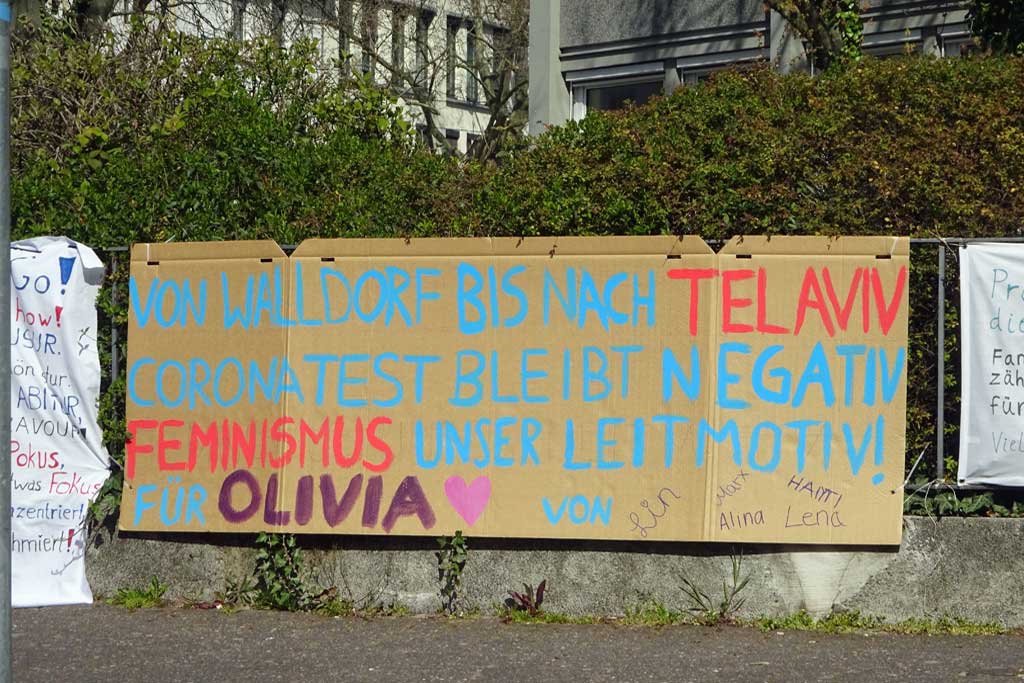 GO!
how!
USUR.
ön für
ABITUR
Pokus,
was Fokus
nzentriert!
hmiert!
VON WALLDORF BIS NACH TEL AVIV
CORONATEST BLEIBT NEGATIV
FEMINISMUS UNSER LEITMOTIV!
FÜR OLIVIA VON Lin Marx HAMTI
Alina Lena
Pr
die
Fam
zäh
für
Viel